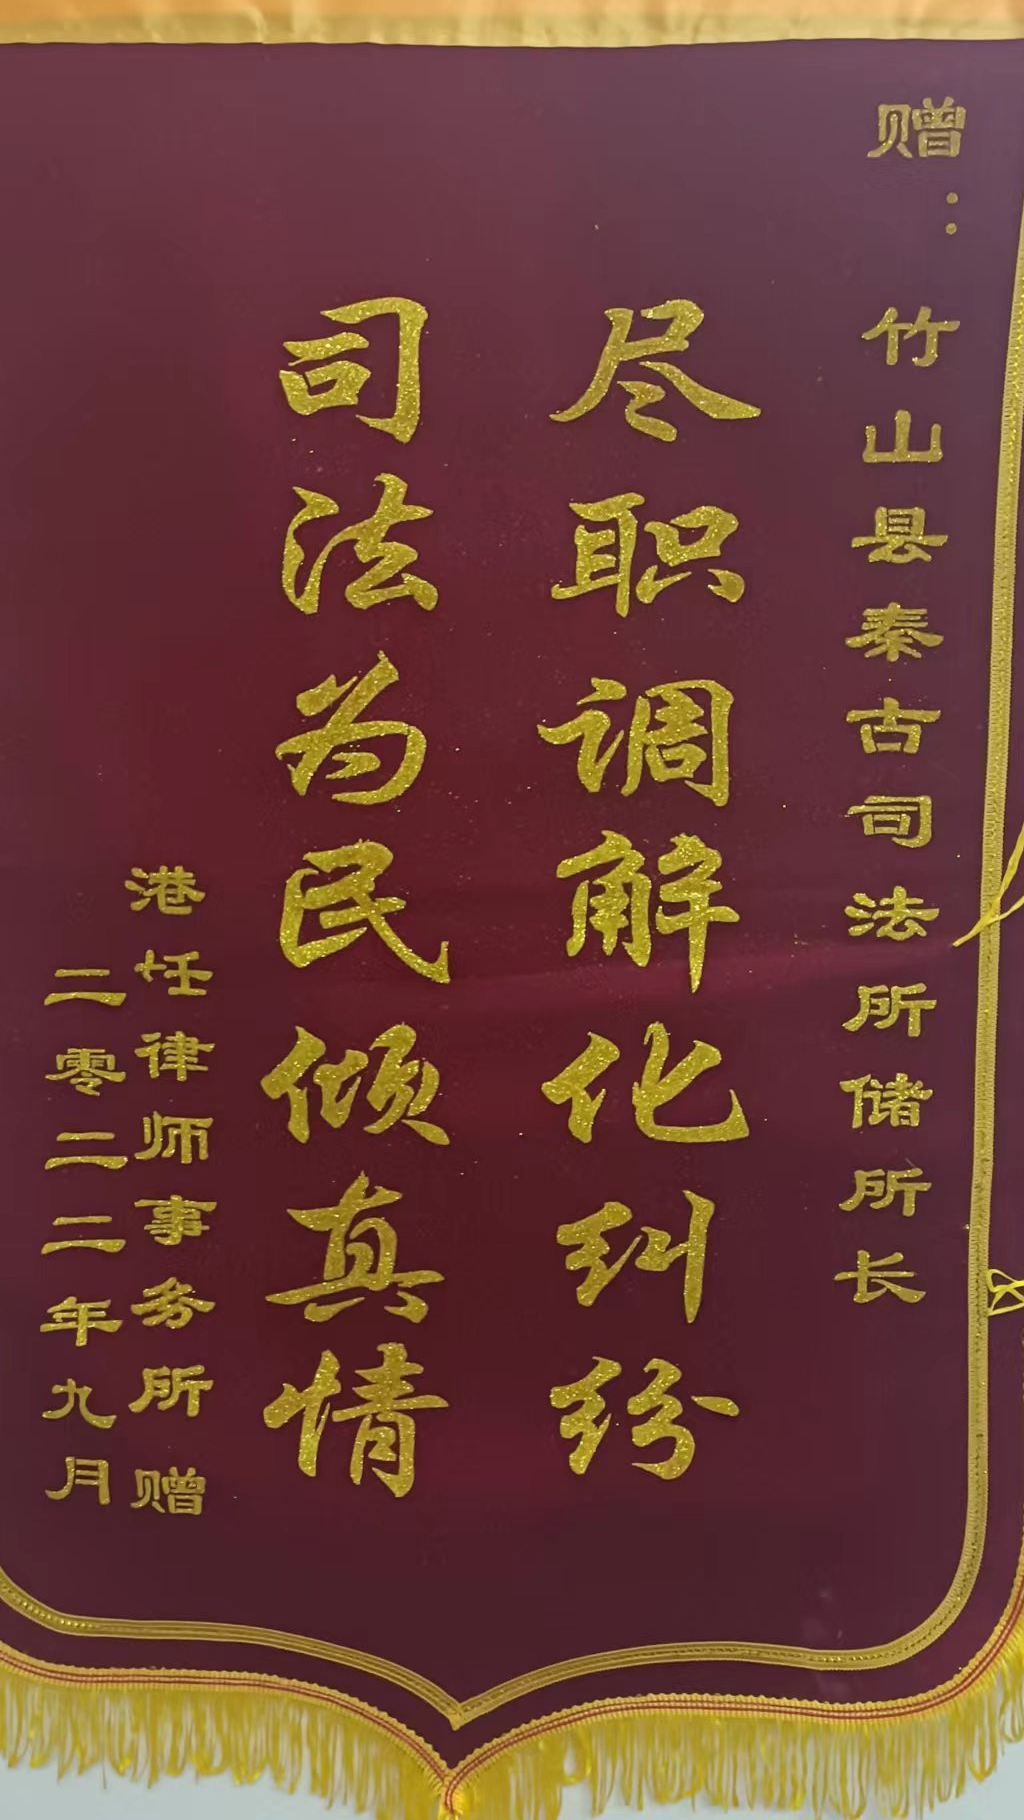 赠：竹山县秦古司法所储所长
尽职调解化纠纷
司法为民倾真情
港任律师事务所赠
二零二二年九月